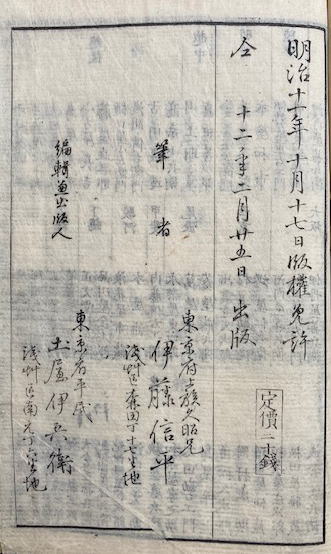 明治十一年十月十七日版權免許
仝 十二年二月廿五日出版
定價二十錢
筆者
東京府士族久昭兄
伊藤信平
淺艸區森田丁十七番地
編輯兼出版人
東京府平民
土屋伊兵衛
淺艸區南元丁六番地